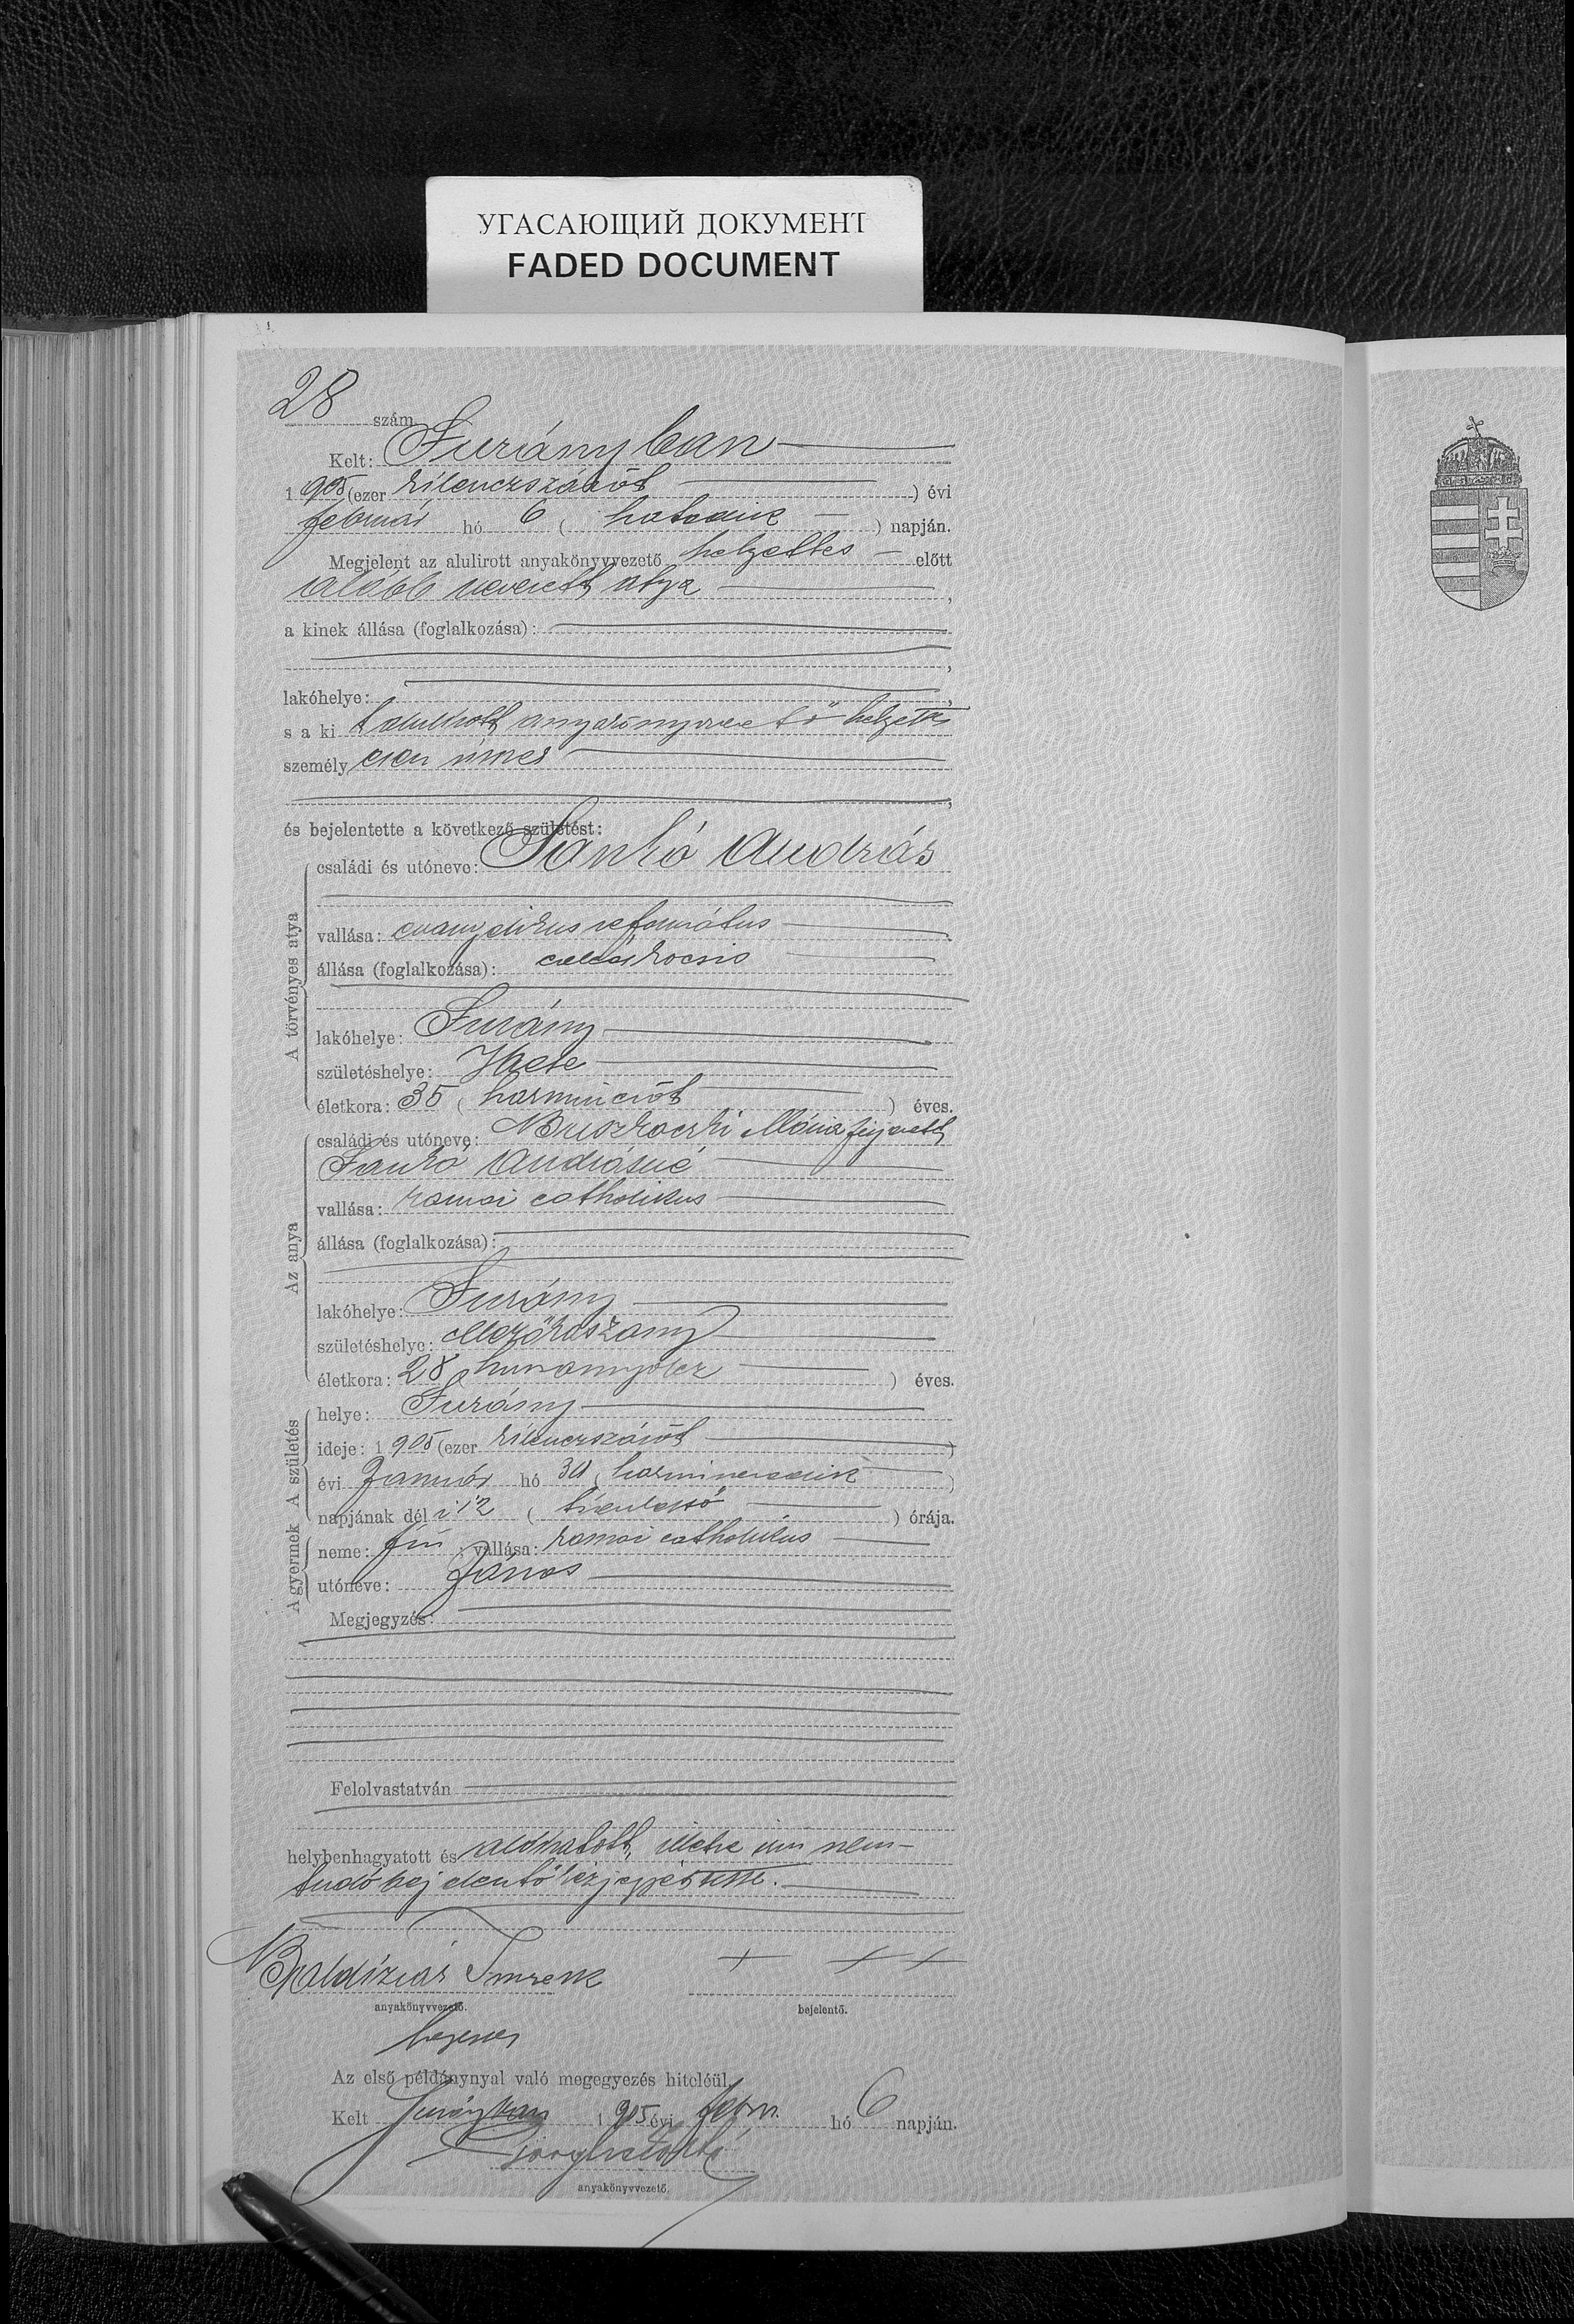 УГАСАЮЩИЙ ДОКУМЕНТ
FADED DOCUMENT
28 szám.
Kelt: Furányban
1 905 (ezer kilenczszázöt ) évi
február hó 6 ( hatodik ) napján.
Megjelent az alulirott anyakönyvvezető helyettes előtt
alább nevezett atya ,
a kinek állása (foglalkozása):
,
lakóhelye: ,
s a ki alulirott anyakönyvvezető helyettes
személy esen ismer
,
és bejelentette a következő születést:
A törvényes atya
családi és utóneve: Sankó András
vallása: evangelikus református
állása (foglalkozása): kocsis
lakóhelye: Furány
születéshelye:
életkora: 35 ( harminczöt ) éves.
Az anya
családi és utóneve: Mária férjezett
Sankó Andrásné
vallása: romai catholikus
állása (foglalkozása):
lakóhelye: Furány
születéshelye: Mezőkászony
életkora: 28 ( huszonnyolcz ) éves.
A születés
helye: Furány
ideje: 1 905 (ezer kilenczszázöt )
évi Január hó 30 ( harminczadik )
napjának dél i 12 ( tizenkettő ) órája.
A gyermek
neme: fiú ; vallása: romai catholikus
utóneve: János
Megjegyzés:
Felolvastatván
helybenhagyatott és aláiratott, illetve irni nem
tudó bejelentő kézjegyével
Imre + + +
anyakönyvvezető. bejelentő.
helyettes
Az első példánynyal való megegyezés hiteléül.
Kelt Furányban 1 905 évi febr. hó 6 napján.
anyakönyvvezető.